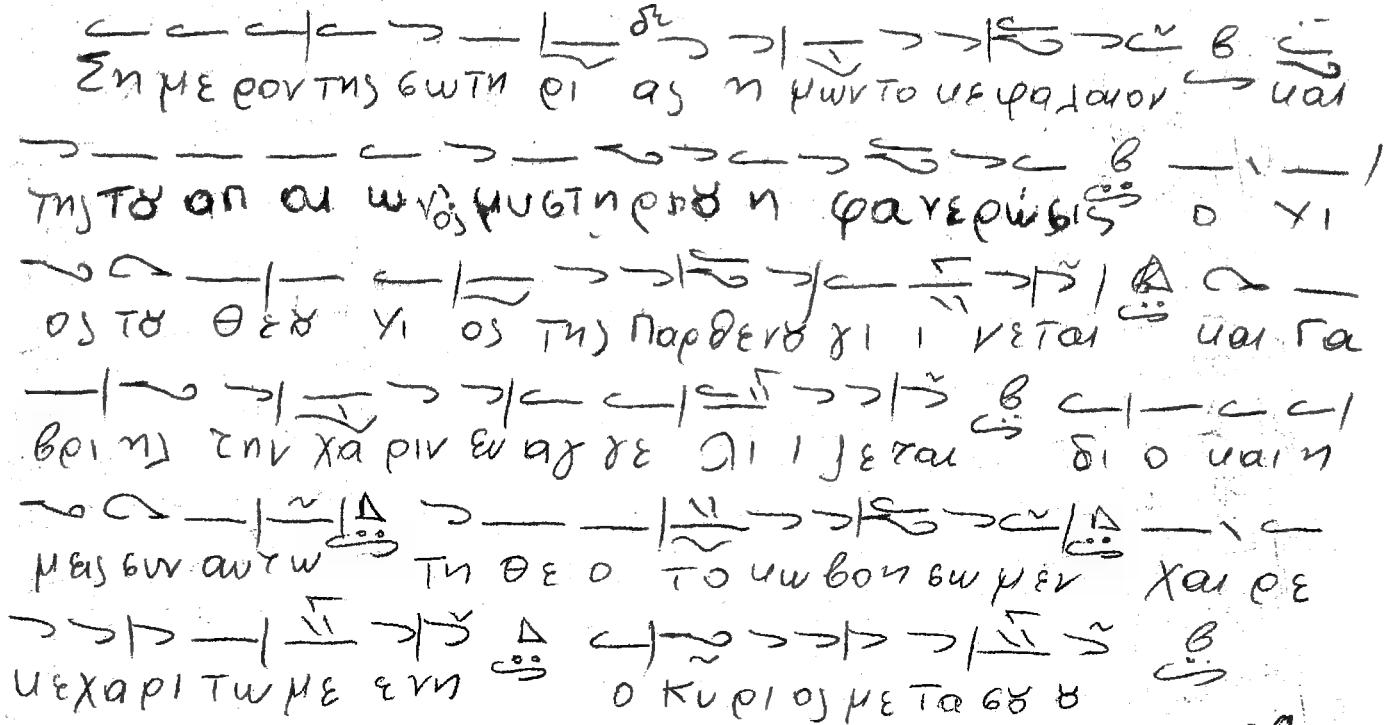 Ση με ρον της σωτη ρι ας η μων το κεφαλαιον και
της του απ αι ω νος μυστηριου η φανερώσις ο υι
ος του θεου υι ος της παρθενου γι ι νεται και Γα
βρι ηλ την χα ριν ευ αγ γε λι ι ζεται δι ο και η
μεις συν αυτω τη θε ο το κω βοη σω μεν χαι ρε
κεχαρι τω με ε νη ο κυρι ος με τα σου ου